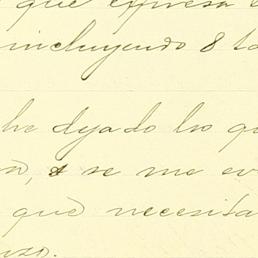 que expresa
incluyendo 8 to
he dejado los qu
, o se me ev
que necesita
uso.